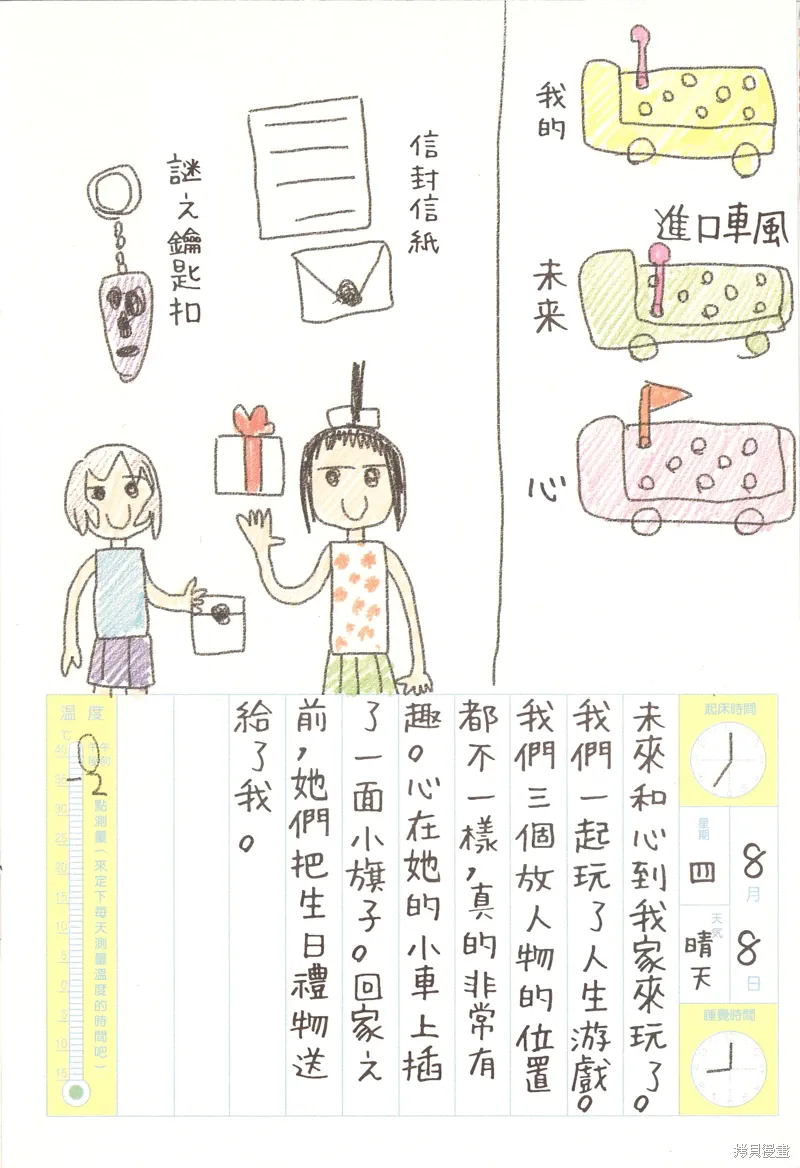 我的
進口車風
未來
心
信封信紙
謎之鑰匙扣
起床時間
8月8日
星期四
天氣
晴天
睡覺時間
未來和心到我家來玩了。
我們一起玩了人生游戲。
我們三個放人物的位置
都不一樣，真的非常有
趣。心在她的小車上插
了一面小旗子。回家之
前，她們把生日禮物送
給了我。
溫度
℃
午前
午後
10
點測量（來定下每天測量溫度的時間吧）
40
35
30
25
20
15
10
5
0
5
10
15
拷貝漫畫